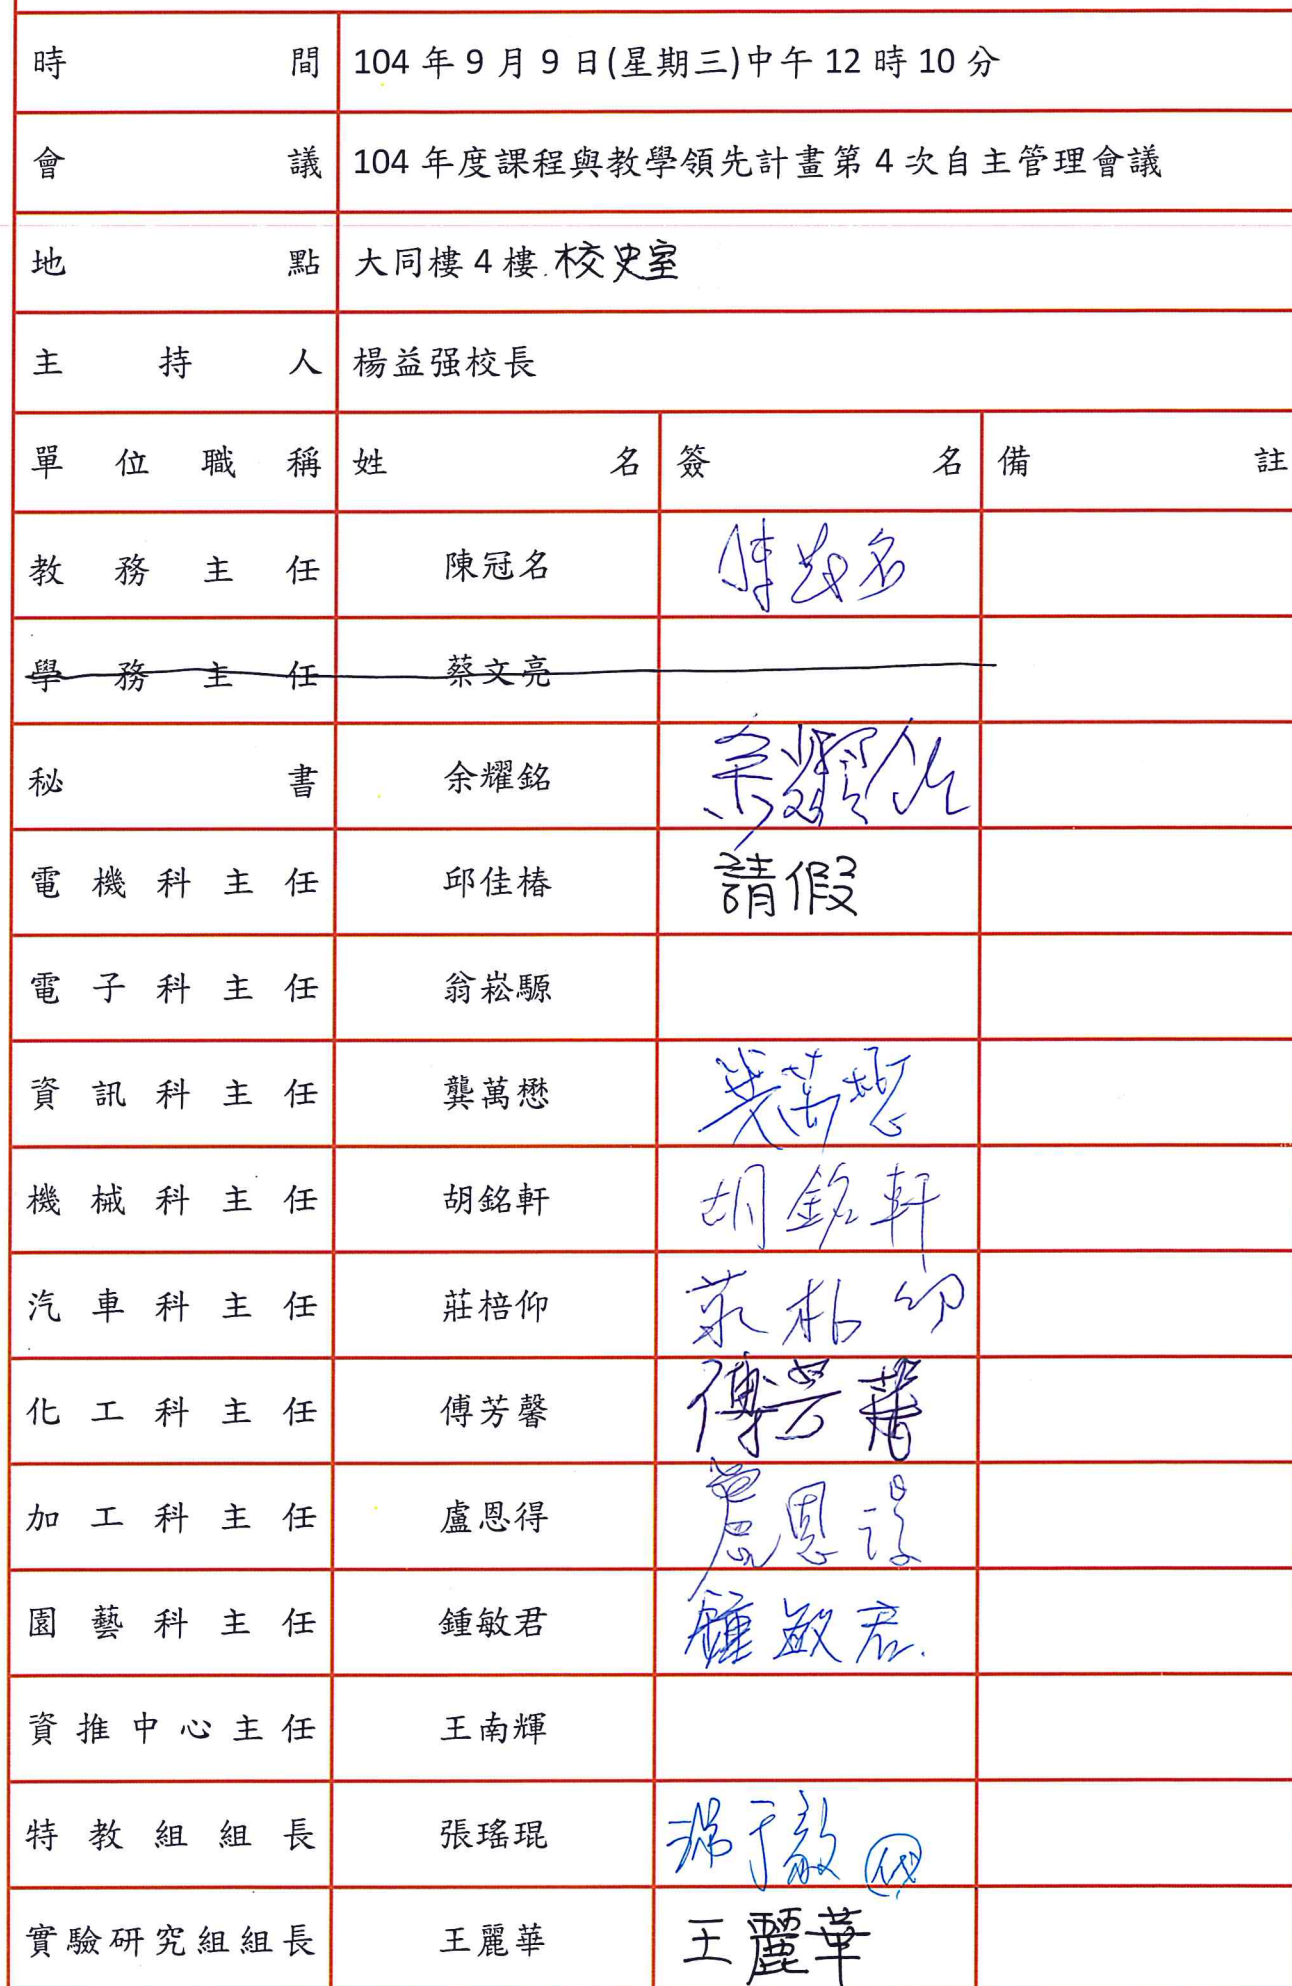 時間 104年9月9日(星期三)中午12時10分
會議 104年度課程與教學領先計畫第4次自主管理會議
地點 大同樓4樓.校史室
主持人 楊益强校長
單位職稱 姓名 簽名 備註
教務主任 陳冠名 陳冠名
學務主任 蔡文亮
秘書 余耀銘 余耀銘
電機科主任 邱佳椿 請假
電子科主任 翁崧騵
資訊科主任 龔萬懋 龔萬懋
機械科主任 胡銘軒 胡銘軒
汽車科主任 莊棓仰 莊棓仰
化工科主任 傅芳馨 傅芳馨
加工科主任 盧恩得 盧恩得
園藝科主任 鍾敏君 鍾敏君.
資推中心主任 王南輝
特教組組長 張瑤琨 代
實驗研究組組長 王麗華 王麗華